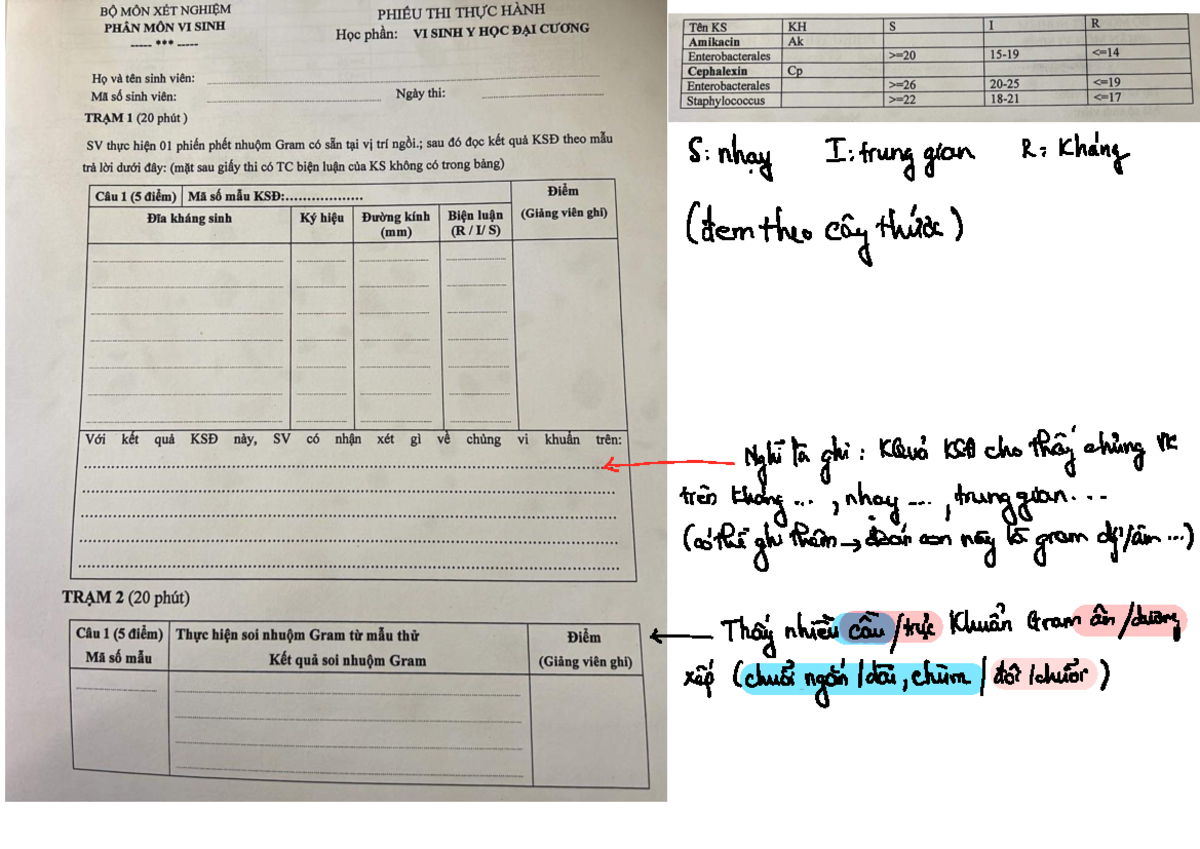 BỘ MÔN XÉT NGHIỆM
PHÂN MÔN VI SINH
----- *** -----
PHIẾU THI THỰC HÀNH
Học phần: VI SINH Y HỌC ĐẠI CƯƠNG
Họ và tên sinh viên:
Mã số sinh viên: Ngày thi:
TRẠM 1 (20 phút )
SV thực hiện 01 phiến phết nhuộm Gram có sẵn tại vị trí ngồi.; sau đó đọc kết quả KSĐ theo mẫu
trả lời dưới đây: (mặt sau giấy thi có TC biện luận của KS không có trong bảng)
Câu 1 (5 điểm) Mã số mẫu KSĐ:.................. Điểm
(Giảng viên ghi)
Đĩa kháng sinh Ký hiệu Đường kính (mm) Biện luận (R / I/ S)
Với kết quả KSĐ này, SV có nhận xét gì về chủng vi khuẩn trên:
TRẠM 2 (20 phút)
Câu 1 (5 điểm) Thực hiện soi nhuộm Gram từ mẫu thử Điểm
Mã số mẫu Kết quả soi nhuộm Gram (Giảng viên ghi)
Tên KS KH S I R
Amikacin Ak
Enterobacterales >=20 15-19 <=14
Cephalexin Cp
Enterobacterales >=26 20-25 <=19
Staphylococcus >=22 18-21 <=17
S: nhạy I: trung gian R: Kháng
(đem theo cây thước)
Nghĩ là ghi: KQuả KSĐ cho thấy chủng VK
trên kháng ... , nhạy ... , trung gian ...
(có thể ghi thêm → đoán con này là gram dg/âm ...)
Thấy nhiều cầu/trực khuẩn Gram âm/dương
xếp (chuỗi ngắn/dài, chùm / đôi/chuỗi)